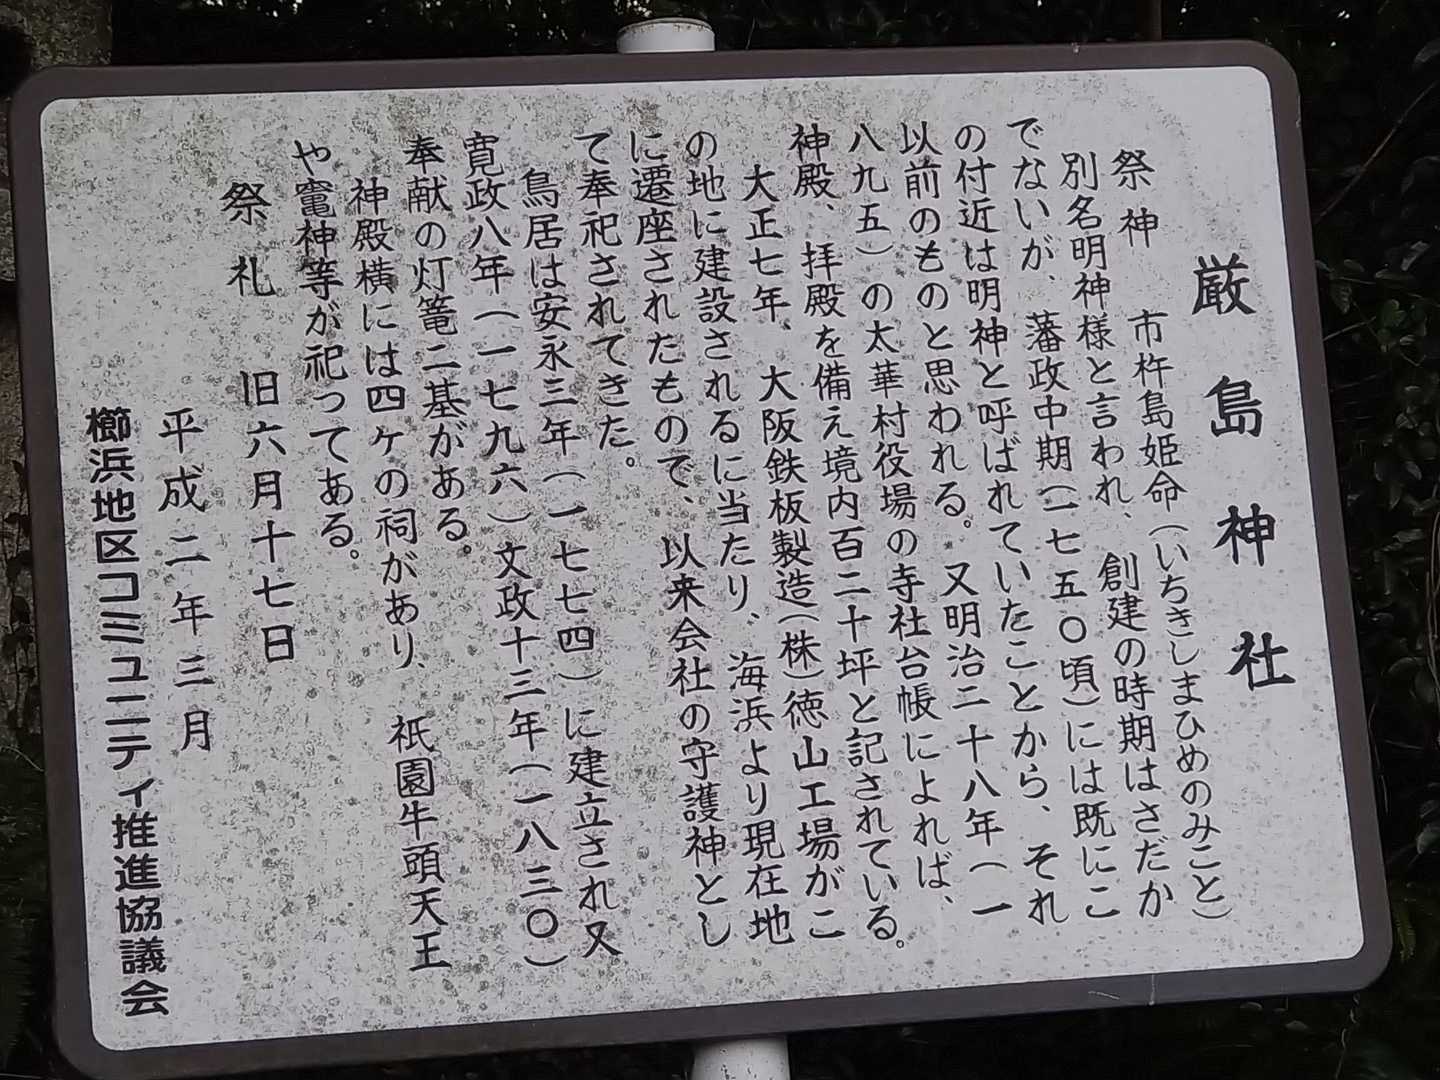 厳島神社
祭神　市杵島姫命（いちきしまひめのみこと）
別名明神様と言われ、創建の時期はさだか
でないが、藩政中期（一七五〇頃）には既にこ
の付近は明神と呼ばれていたことから、それ
以前のものと思われる。又明治二十八年（一
八九五）の太華村役場の寺社台帳によれば、
神殿、拝殿を備え境内百二十坪と記されている。
大正七年、大阪鉄板製造（株）徳山工場がこ
の地に建設されるに当たり、海浜より現在地
に遷座されたもので、以来会社の守護神とし
て奉祀されてきた。
鳥居は安永三年（一七七四）に建立され又
寛政八年（一七九六）文政十三年（一八三〇）
奉献の灯篭二基がある。
神殿横には四ケの祠があり、祇園牛頭天王
や竃神等が祀ってある。
祭礼　旧六月十七日
平成二年三月
櫛浜地区コミュニティ推進協議会